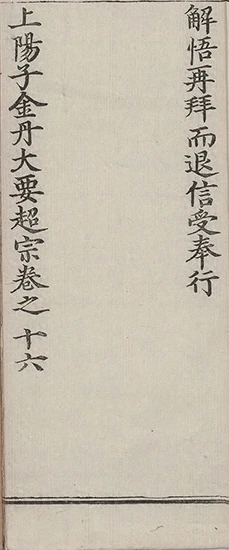 解悟再拜而退信受奉行
上陽子金丹大要超宗卷之十六